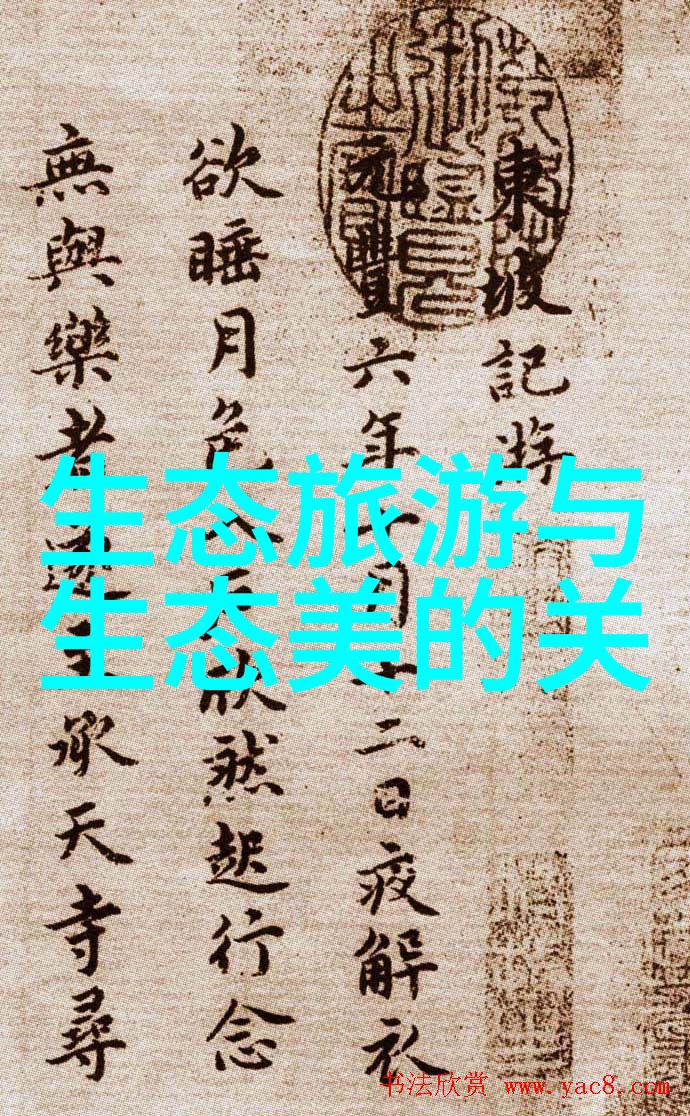 東坡記游
元豐六年十月十二日夜解衣
欲睡月色入戶欣然起行念
無與樂者遂至承天寺尋
生态旅游与
生态美的关
书法欣赏 www.yac8.com